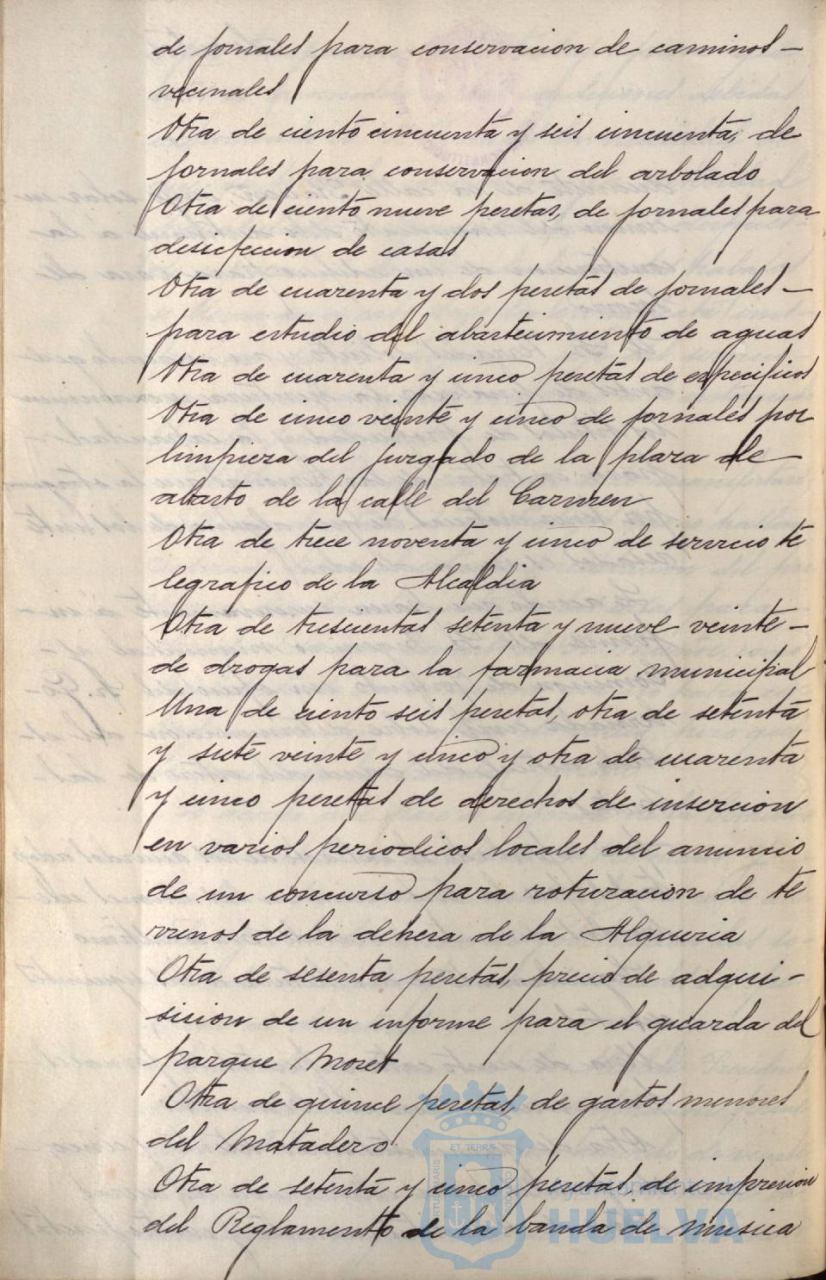 de jornales para conservacion de caminos—
vecinales
Otra de ciento cincuenta y seis cincuenta, de
jornales para conservacion del arbolado
Otra de ciento nueve pesetas, de jornales para
desicfeccion de casas
Otra de cuarenta y dos pesetas de jornales—
para estudio del abastecimiento de aguas
Otra de cuarenta y cinco pesetas de especificos
Otra de cinco veinte y cinco de jornales por
limpieza del juzgado de la plaza de—
abasto de la calle del Carmen
Otra de trece noventa y cinco de servicio te
legrafico de la Alcaldia
Otra de trescientas setenta y nueve veinte—
de drogas para la farmacia municipal
Una de ciento seis pesetas, otra de setenta
y siete veinte y cinco y otra de cuarenta
y cinco pesetas de derechos de insercion
en varios periodicos locales del anuncio
de un concurso para roturacion de te
rrenos de la dehesa de la Alqueria
Otra de sesenta pesetas, precio de adqui-
sision de un informe para el guarda del
parque Moret
Otra de quince pesetas, de gastos menores
del Matadero
Otra de setenta y cinco pesetas, de impresion
del Reglamento de la banda de musica
HUELVA